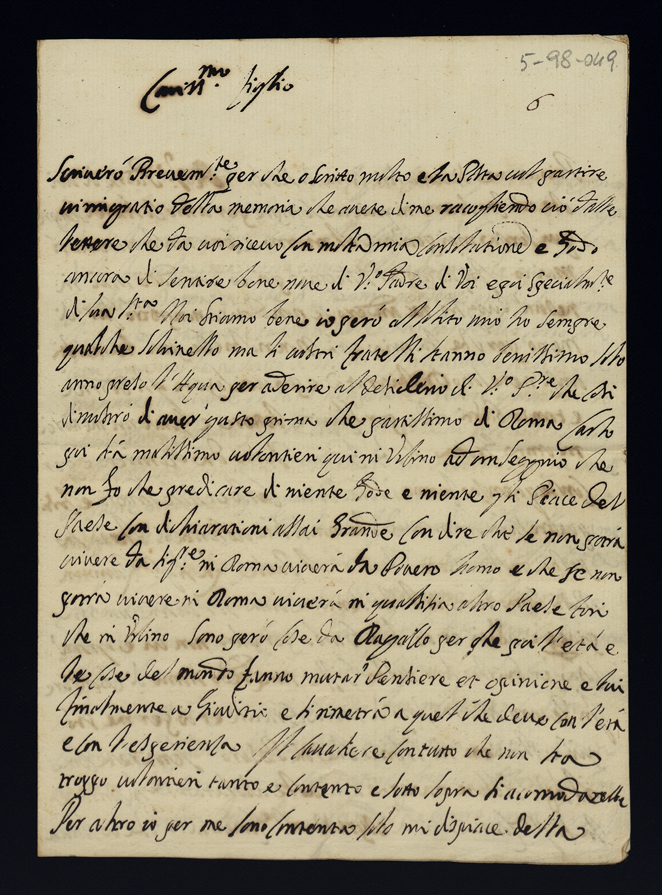 5-98-049
6
Cariss.mo figlio
Scriverò Brevem.te per che o scritto molto e la Posta vol partire
vi ringratio della memoria che avete di me racogliendo ciò dalle
lettere che da voi ricevo con molta mia Consolatione e Godo
ancora di sentire bone nove di V.o Padre di Voi e poi specialm.te
di sua S.tà Noi stiamo bene io però al solito mio ho sempre
qualche ma li vostri fratelli stanno benissimo solo
anno preso l'Aqua per aderire al desiderio di V.o P.re che così
di mostrò di aver gusto prima che partissimo di Roma Carlo
poi stà malissimo volontieri qui ni Urbino ad un segnio che
non fo che predicare di niente Gode e niente gli Piace del
Paese Con dichiarationi assai Grande Con dire che se non potrà
vivere da Sig.re ni Roma viverà da Povero homo e che se non
potrà vivere ni Roma viverà ni qualsisia altro Paese fori
che in Urbino sono però cose da Ragasso per che poi l'età e
le cose del mondo fanno mutar Pensiere et opinione e lui
finalmente a Giuditio e si rimetrà a quel che deve con l'età
e con l'esperienza Il Cavaliere con tutto che non sta
troppo volontieri tanto e contento e sotto sopra si acomoda
Per altro io per me sono Contenta solo mi dispiace della